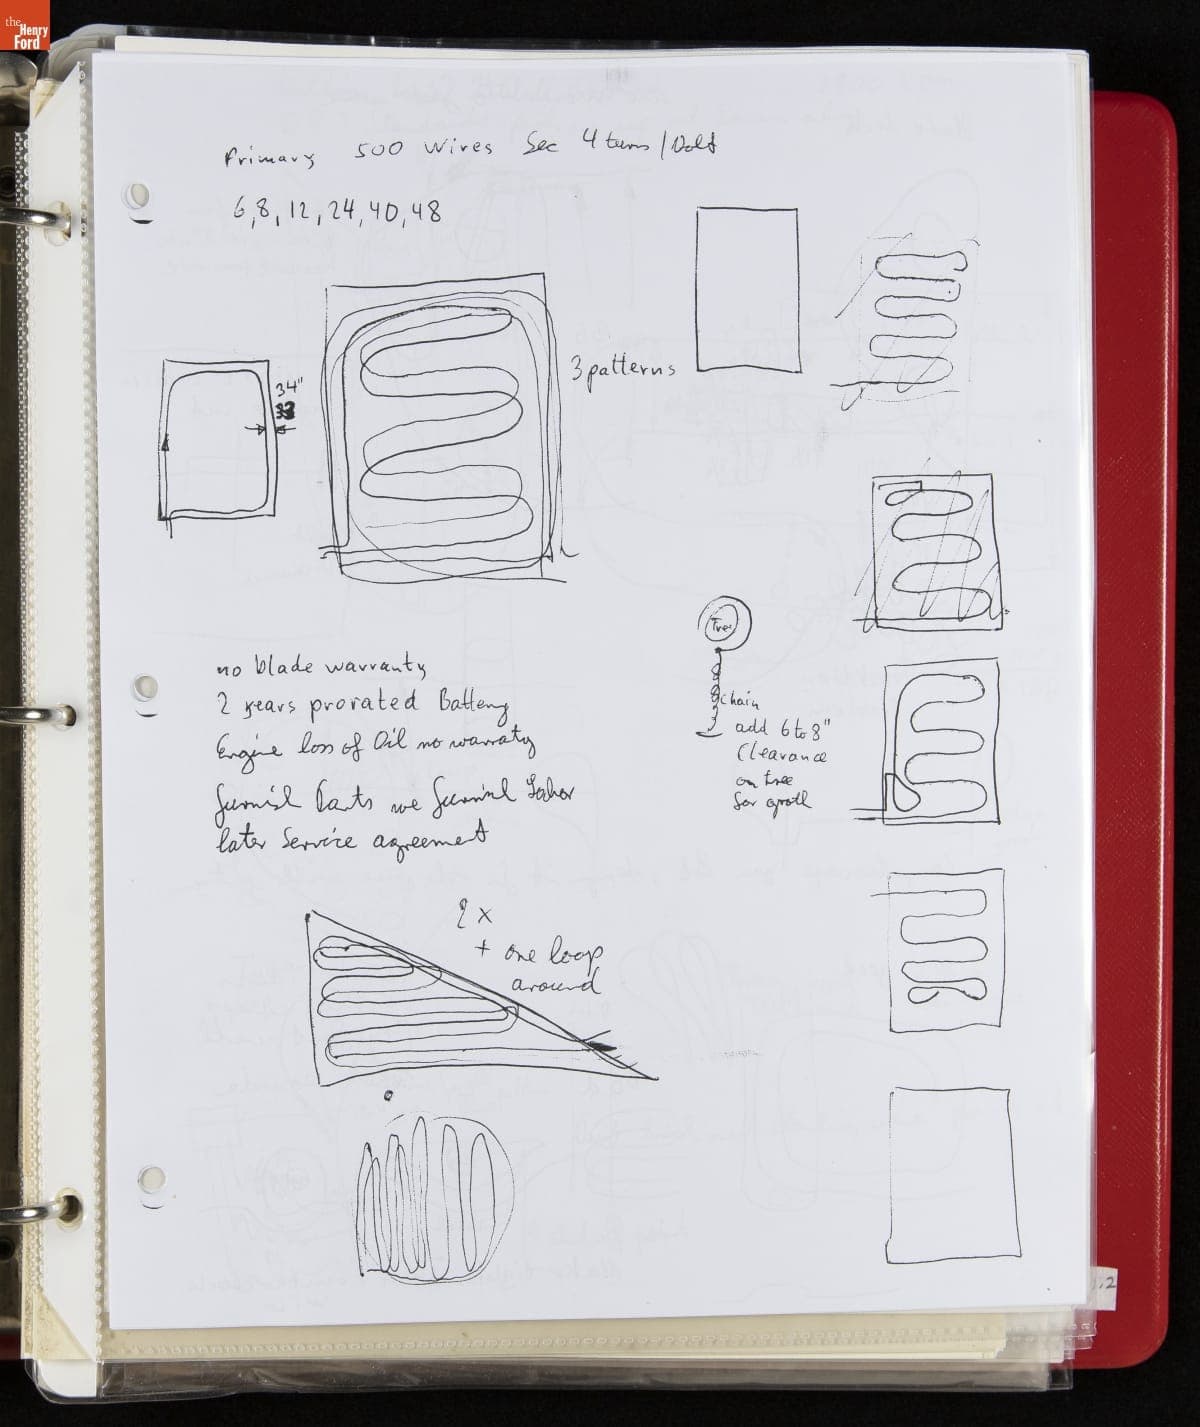 the
Henry
Ford
Primary 500 wires Sec 4 turns/Volt
6,8,12,24,40,48
34"
3 patterns
Tree
no blade warranty
2 years prorated Battery
Engine loss of Oil no warraty
furnish Parts we furnish
later Service agreement
chain
add 6 to 8"
Clearance
on tree
for growth
2 x
+ one loop
around